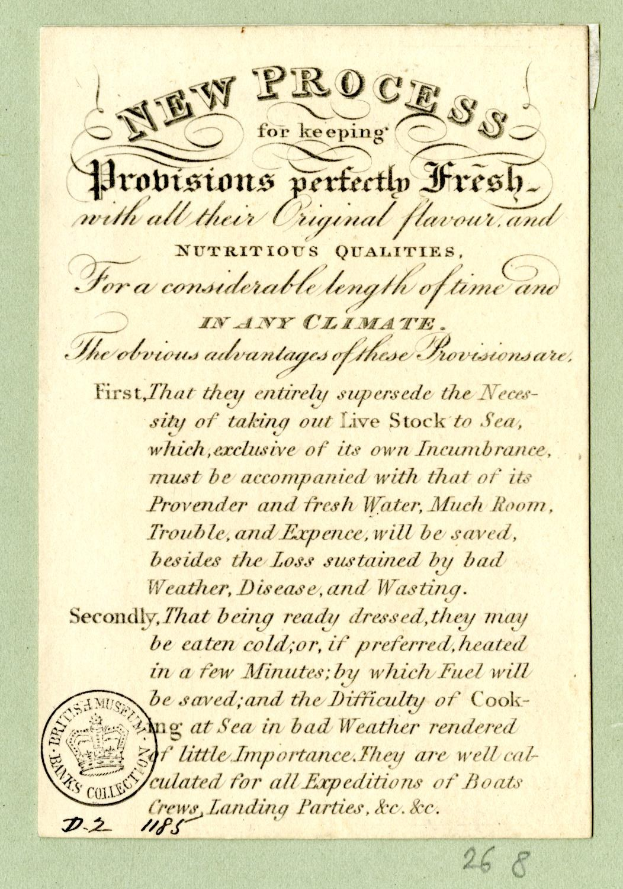 NEW PROCESS
for keeping
Provisions perfectly Fresh
with all their Original flavour, and
NUTRITIOUS QUALITIES,
For a considerable length of time and
IN ANY CLIMATE.
The obvious advantages of these Provisions are,
First, That they entirely supersede the Neces-
sity of taking out Live Stock to Sea,
which, exclusive of its own Incumbrance,
must be accompanied with that of its
Provender and fresh Water, Much Room,
Trouble, and Expence, will be saved,
besides the Loss sustained by bad
Weather, Disease, and Wasting.
Secondly, That being ready dressed, they may
be eaten cold; or, if preferred, heated
in a few Minutes; by which Fuel will
be saved; and the Difficulty of Cook-
ing at Sea in bad Weather rendered
of little Importance. They are well cal-
culated for all Expeditions of Boats
Crews, Landing Parties, &c. &c.
BRITISH MUSEUM
BANKS COLLECTION
D-2 1185
26 8